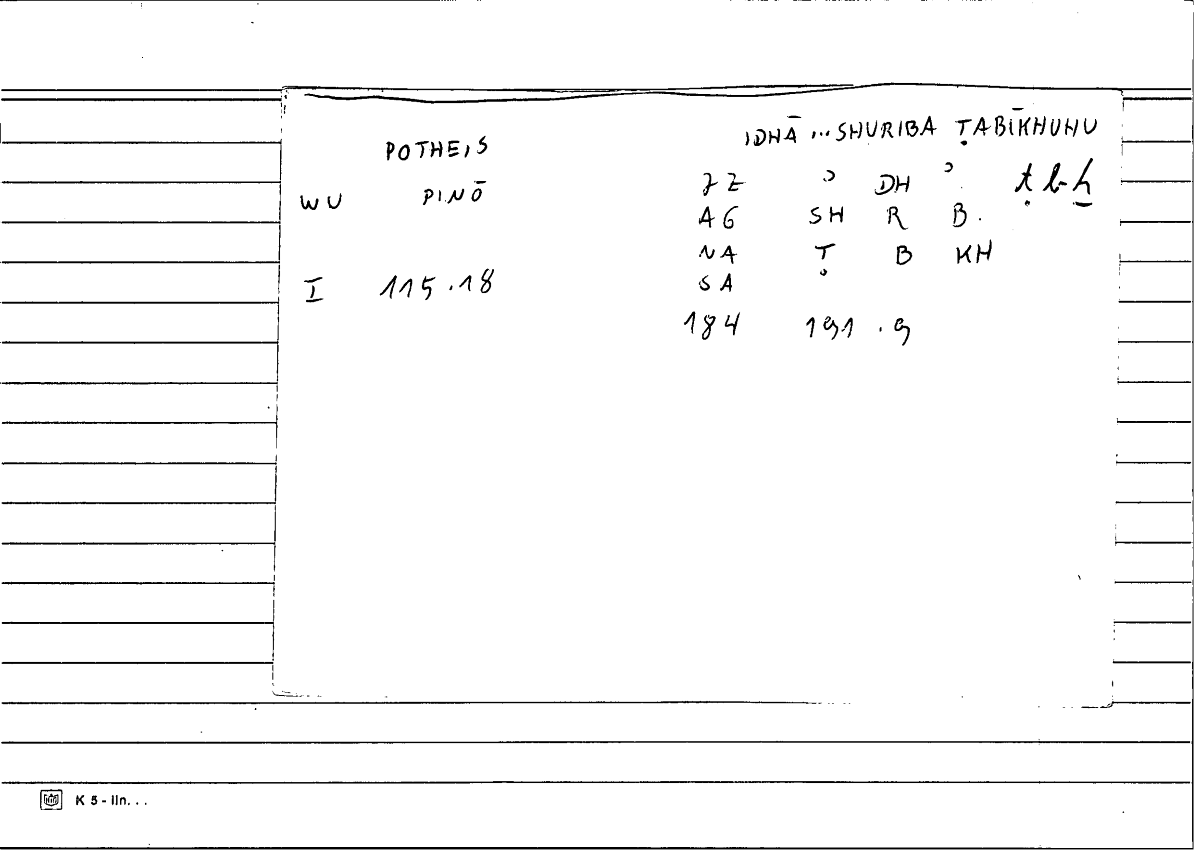 POTHEIS IDHĀ ... SHURIBA ṬABĪKHUHU
WU PINŌ ZZ ʾ DH ʾ ṭbḫ
AG SH R B.
NA Ṭ B KH
I 115.18 SA
184 191.9
K 5 - lin. . .